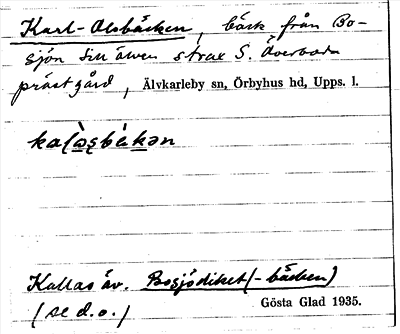 Karl-Olsbäcken, bäck från Bo-
sjön till älven strax S. Överboda
prästgård, Älvkarleby sn, Örbyhus hd, Upps. l.
Kallas äv. Bosjödiket (-bäcken)
(se d.o.)
Gösta Glad 1935.